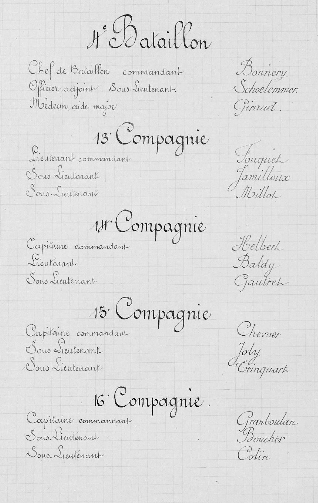 4e Bataillon
Chef de Bataillon commandant Bonnery
Officier adjoint Sous Lieutenant Schoelemmer
Médecin aide major Giraud.
13e Compagnie
Lieutenant commandant Fouquet
Sous Lieutenant Jamilloux
Sous-Lieutenant Maillot
14e Compagnie
Capitaine commandant Helbert
Lieutenant Baldy
Sous Lieutenant
15e Compagnie
Capitaine commandant
Sous Lieutenant Joly
Sous Lieutenant Cinquart
16e Compagnie
Capitaine commandant
Sous-Lieutenant Boucher
Sous-Lieutenant Colin